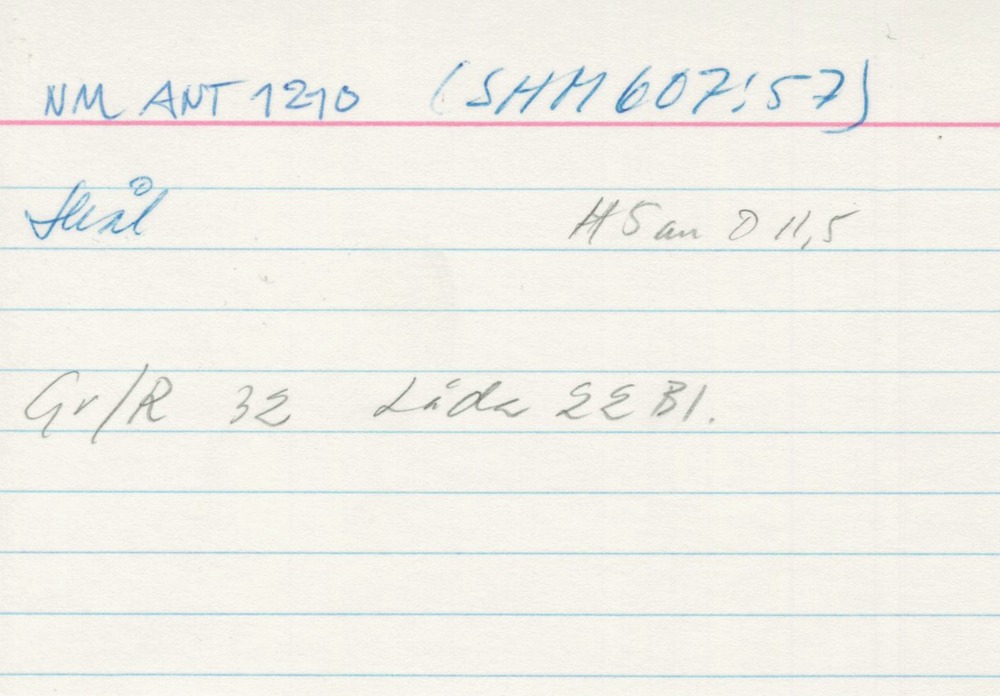 NM ANT 1210 (SHM 607:57)
Skål H 5 cm D 11,5
Gr/R 32 Låda 22 B1.